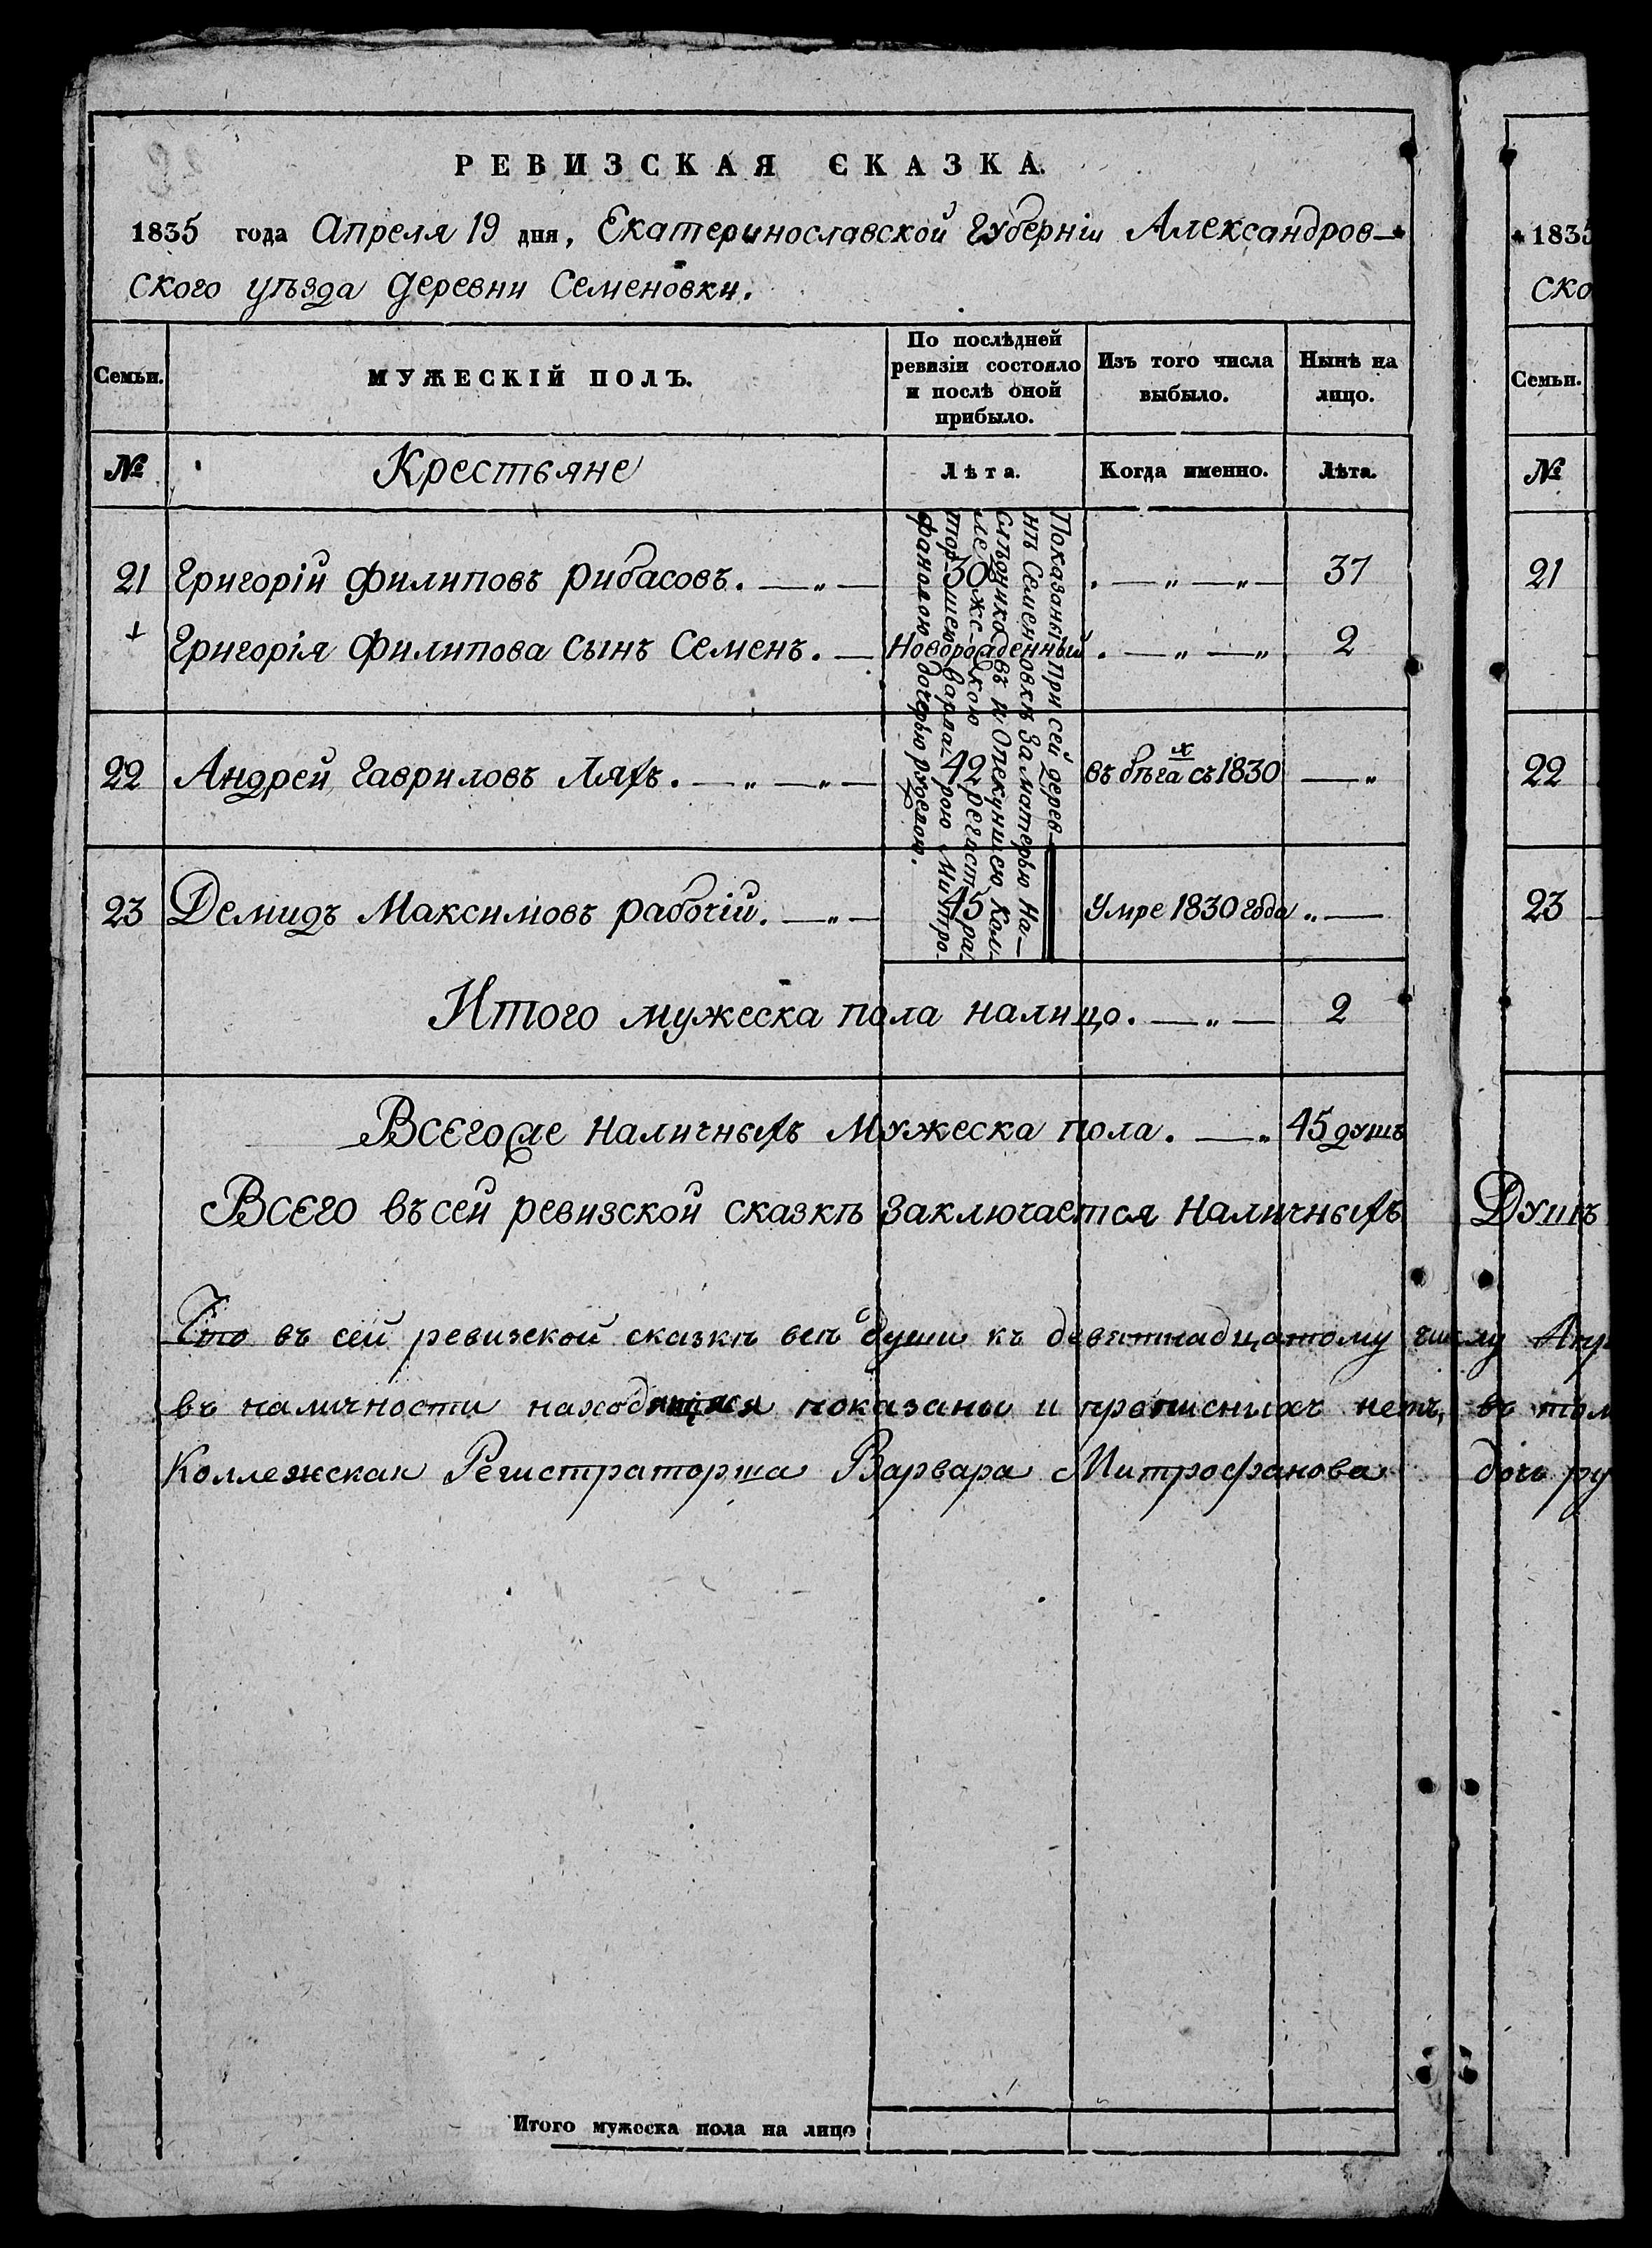 РЕВИЗСКАЯ СКАЗКА.
1835 года Апреля 19 дня, Екатеринославской Губерніи Александров—
ского уѣзда деревни Семеновки.
Семьи.
МУЖЕСКІЙ ПОЛЪ.
По послѣдней
ревизіи состояло
и послѣ оной
прибыло.
Изъ того числа
выбыло.
Нынѣ на
лицо.
№
Крестьяне
Лѣта.
Когда именно.
Лѣта.
21 Григорій Филиповъ Рибасовъ. 30 37
Григорія Филипова сынъ Семенъ. Новорожденный 2
22 Андрей Гавриловъ Ляхъ. 42 въ бѣга съ 1830
23 Демидъ Максимовъ рабочій. 45 Умре 1830 года
Показанніи при сей дерев—
нѣ Семеновкѣ За матерью На—
слѣдниковъ и Опекуншею Кол—
лежскою регистра
торшею Варварою Митро
фановою дочерью
Итого мужеска пола налицо. 2
Всего же Наличныхъ Мужеска пола. 45 душъ
Всего въ сей ревизской сказкѣ Заключается Наличныхъ Душъ
Что въ сей ревизской сказкѣ всѣ души къ девятнадцатому числу Апр
въ наличности находящіяся показаны и прописныхъ нетъ, въ том
Коллежская Регистраторша Варвара Митрофанова дочь ру
Итого мужеска пола на лицо
1835
ско
Семьи.
№
21
22
23